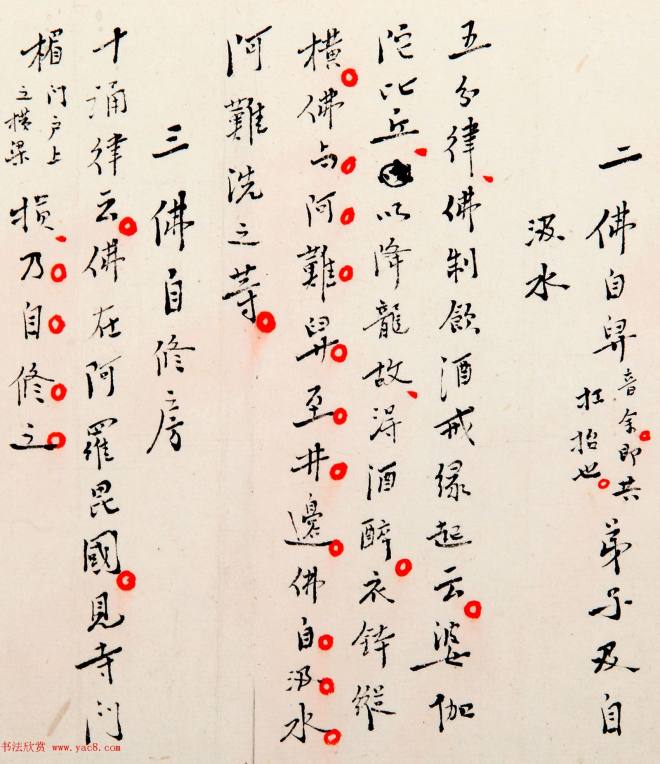 二佛自舁音余即共扛抬也弟子及自
汲水
五分律佛制飲酒戒緣起云婆伽
陀比丘以降龍故得酒醉衣鉢縱
橫佛与阿難舁至井邊佛自汲水
阿難洗之等
三佛自修房
十誦律云佛在阿羅毘國見寺门
楣门户上之橫梁損乃自修之
书法欣赏 www.yac8.com